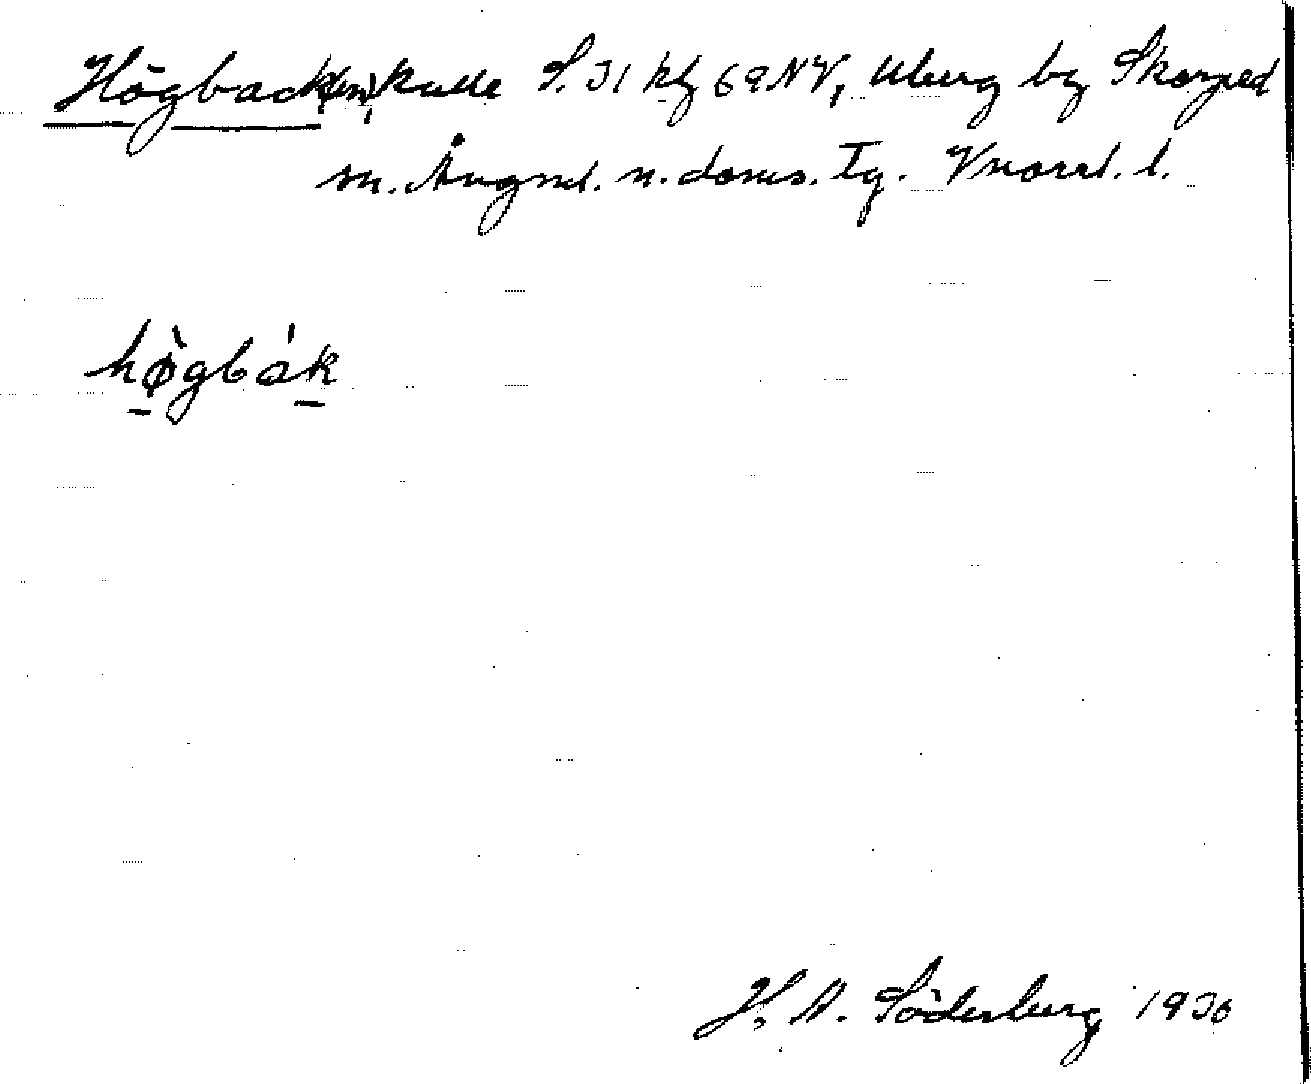 Högback(en), kulle S. 31 kf 69 NV, Uberg by Skorped
sn. Ångml. n. doms. Tg. Vnorrl. l.
hø̀gbák
H. A. Söderberg 1936